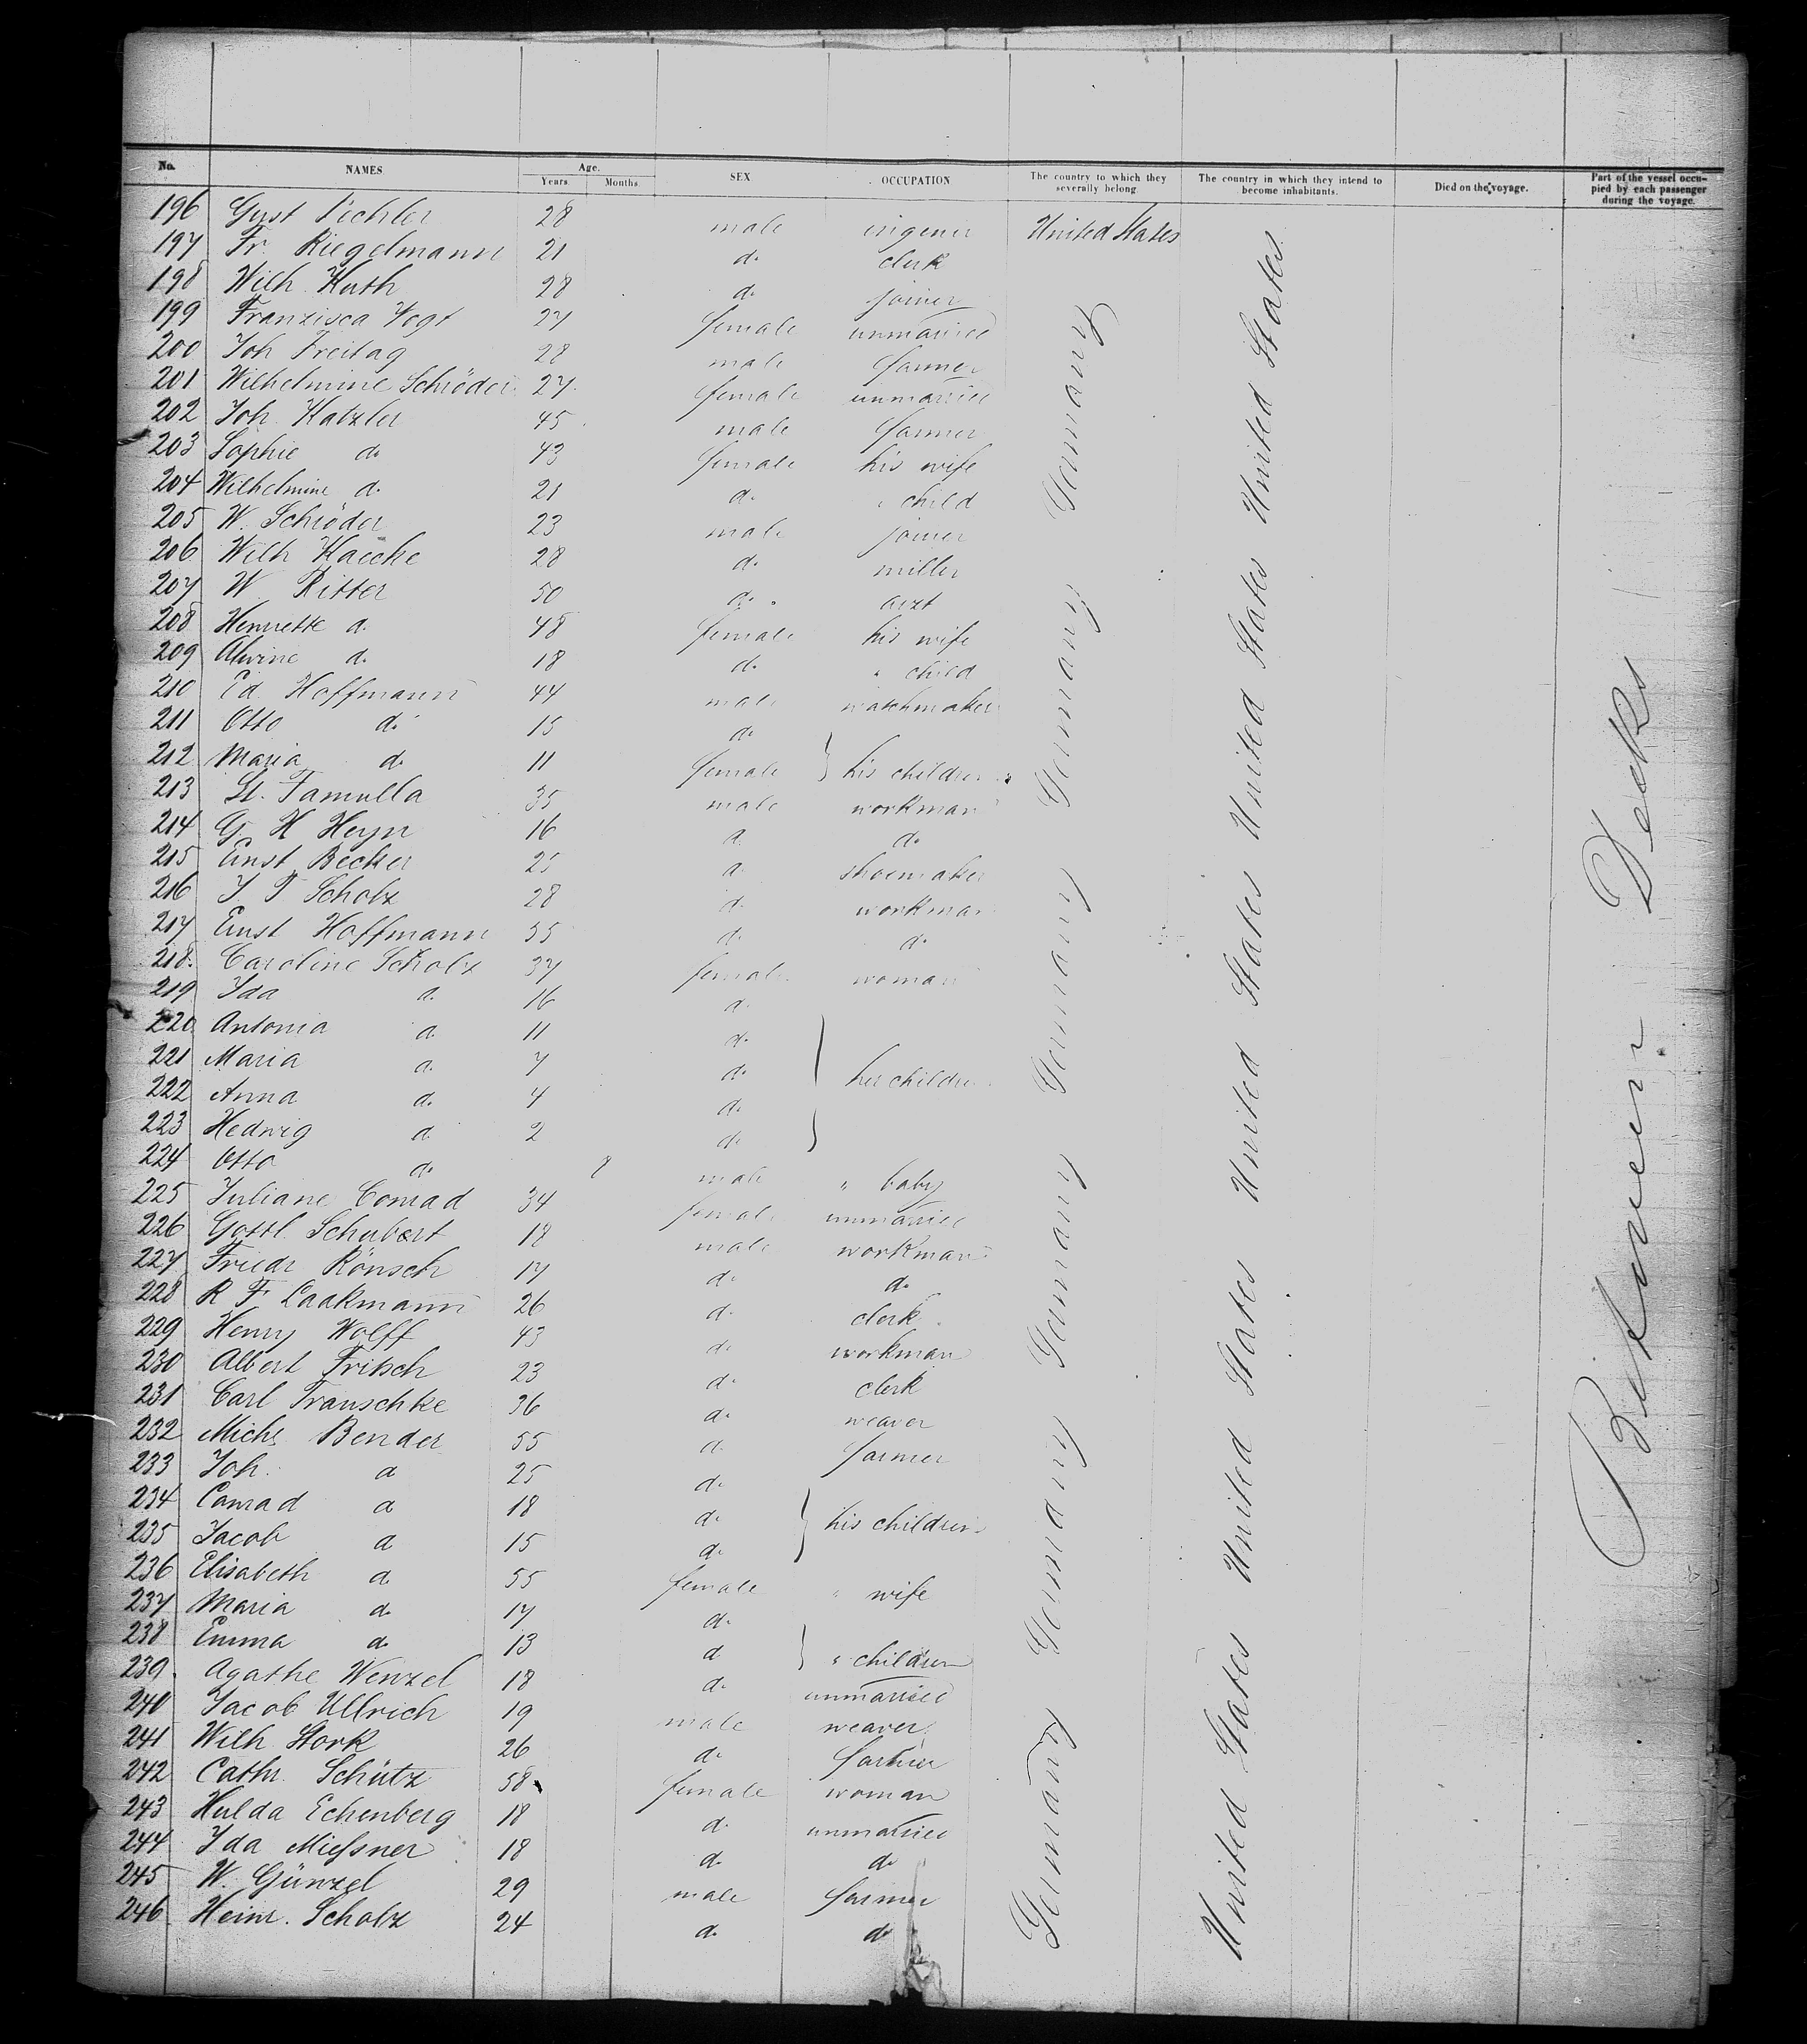 No. NAMES Age. Years. Months. SEX OCCUPATION The country to which they severally belong The country in which they intend to become inhabitants. Died on the voyage. Part of the vessel occupied by each passenger during the voyage.
196 Gust Pichler 28 male ingener United States
197 Fr. Riegelmann 21 d. clerk
198 Wilh. Kuth 28 d. joiner
199 Franzisca Vogt 27 female unmarried
200 Joh Freitag 28 male farmer
201 Wilhelmine Schröder 27 female unmarried
202 Joh. Katzler 45 male farmer
203 Sophie do 43 female his wife
204 Wilhelmine d. 21 d. " child
205 W. Schröder 23 male joiner
206 Wilh Haecke 28 d. miller
207 W. Ritter 50 d. arzt
208 Henriette d. 48 female his wife
209 Alwine d. 18 d. " child
210 Ed. Hoffmann 44 male watchmaker
211 Otto d. 15 d.
212 Maria d. 11 female } his children
213 St. Famulla 35 male workman
214 G. H Heyn 16 d. do
215 Ernst Becker 25 d. shoemaker
216 J F Scholz 28 d. workman
217 Ernst Hoffmann 55 d. d.
218. Caroline Scholz 37 female woman
219 Ida d. 16 d.
220 Antonia d. 11 d.
221 Maria d. 7 d. } her children
222 Anna d. 4 d.
223 Hedwig d. 2 d.
224 Otto do 8 male " baby
225 Juliane Conrad 34 female unmarried
226 Gottl. Schubert 18 male workman
227 Friedr Rönsch 17 d. do
228 R F Laakmann 26 d. clerk
229 Henry Wolff 43 d. workman
230 Albert Fritsch 23 d. clerk
231 Carl Trauschke 36 d. weaver
232 Michs Bender 55 d. farmer
233 Joh. d 25 d.
234 Conrad d 18 d. } his children
235 Jacob d 15 d.
236 Elisabeth d. 55 female " wife
237 Maria d. 17 d.
238 Emma d. 13 d } " children
239. Agathe Wenzel 18 d. unmarried
240 Jacob Ullrich 19 male weaver
241 Wilh Stork 26 d. farmer
242 Cathr. Schütz 58 female woman
243 Hulda Echenberg 18 d. unmarried
244 Ida Mießner 18 d. do
245 W. Günzel 29 male farmer
246 Heinr. Scholz 24 d. do
Germany Germany Germany Germany Germany Germany
United States United States United States United States United States United States
Between Decks